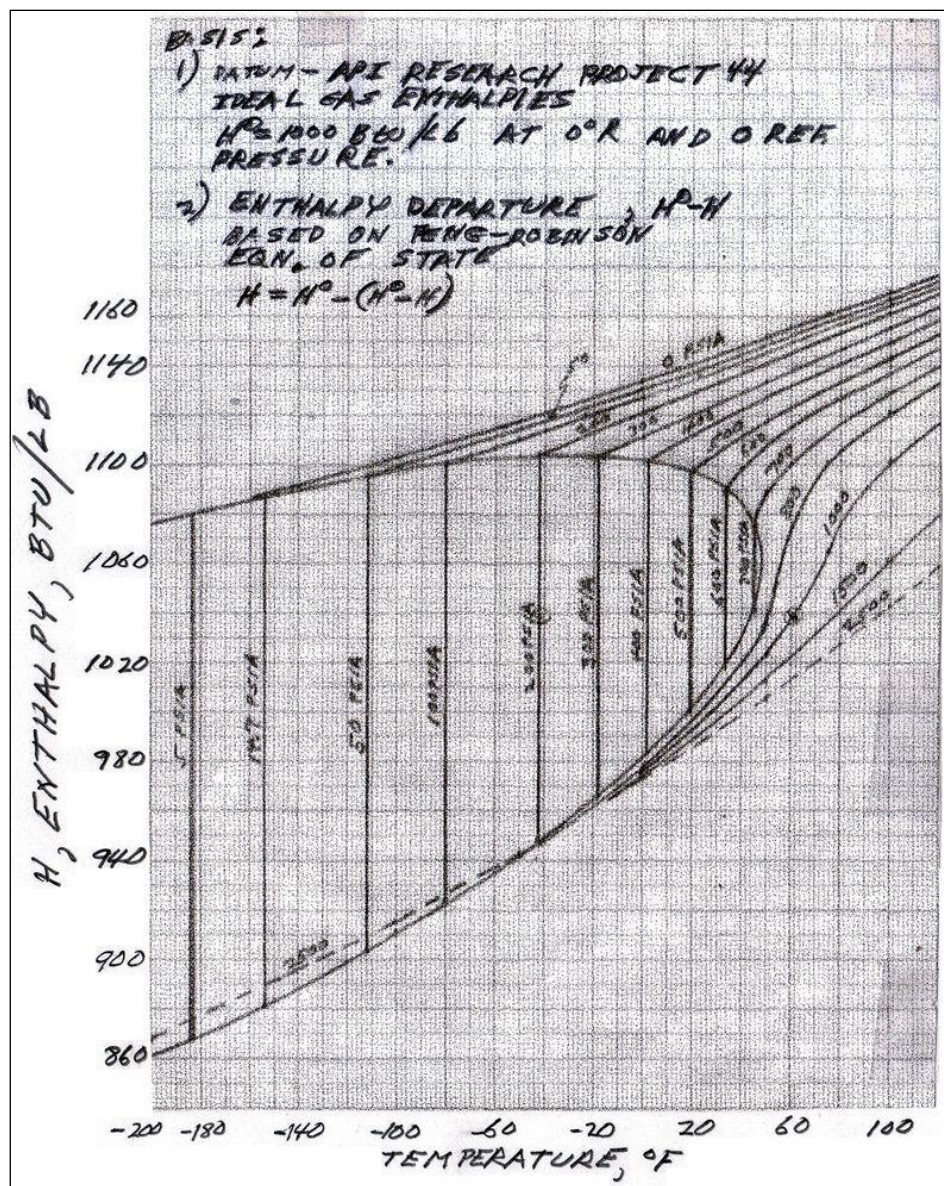 BASIS:
1) DATUM - API RESEARCH PROJECT 44
IDEAL GAS ENTHALPIES
H°=1000 BTU/Lb AT 0°R AND 0 REF.
PRESSURE.
2) ENTHALPY DEPARTURE, H°-H
BASED ON PENG-ROBINSON
EQN. OF STATE
H = H° - (H°-H)
1160
1140
1100
1060
1020
980
940
900
860
H, ENTHALPY, BTU/LB
0 PSIA
300
500
600
700
800
1000
1500
2500
5 PSIA
14.7 PSIA
50 PSIA
100PSIA
200PSIA
300 PSIA
400 PSIA
500 PSIA
600 PSIA
-200 -180 -140 -100 -60 -20 20 60 100
TEMPERATURE, °F